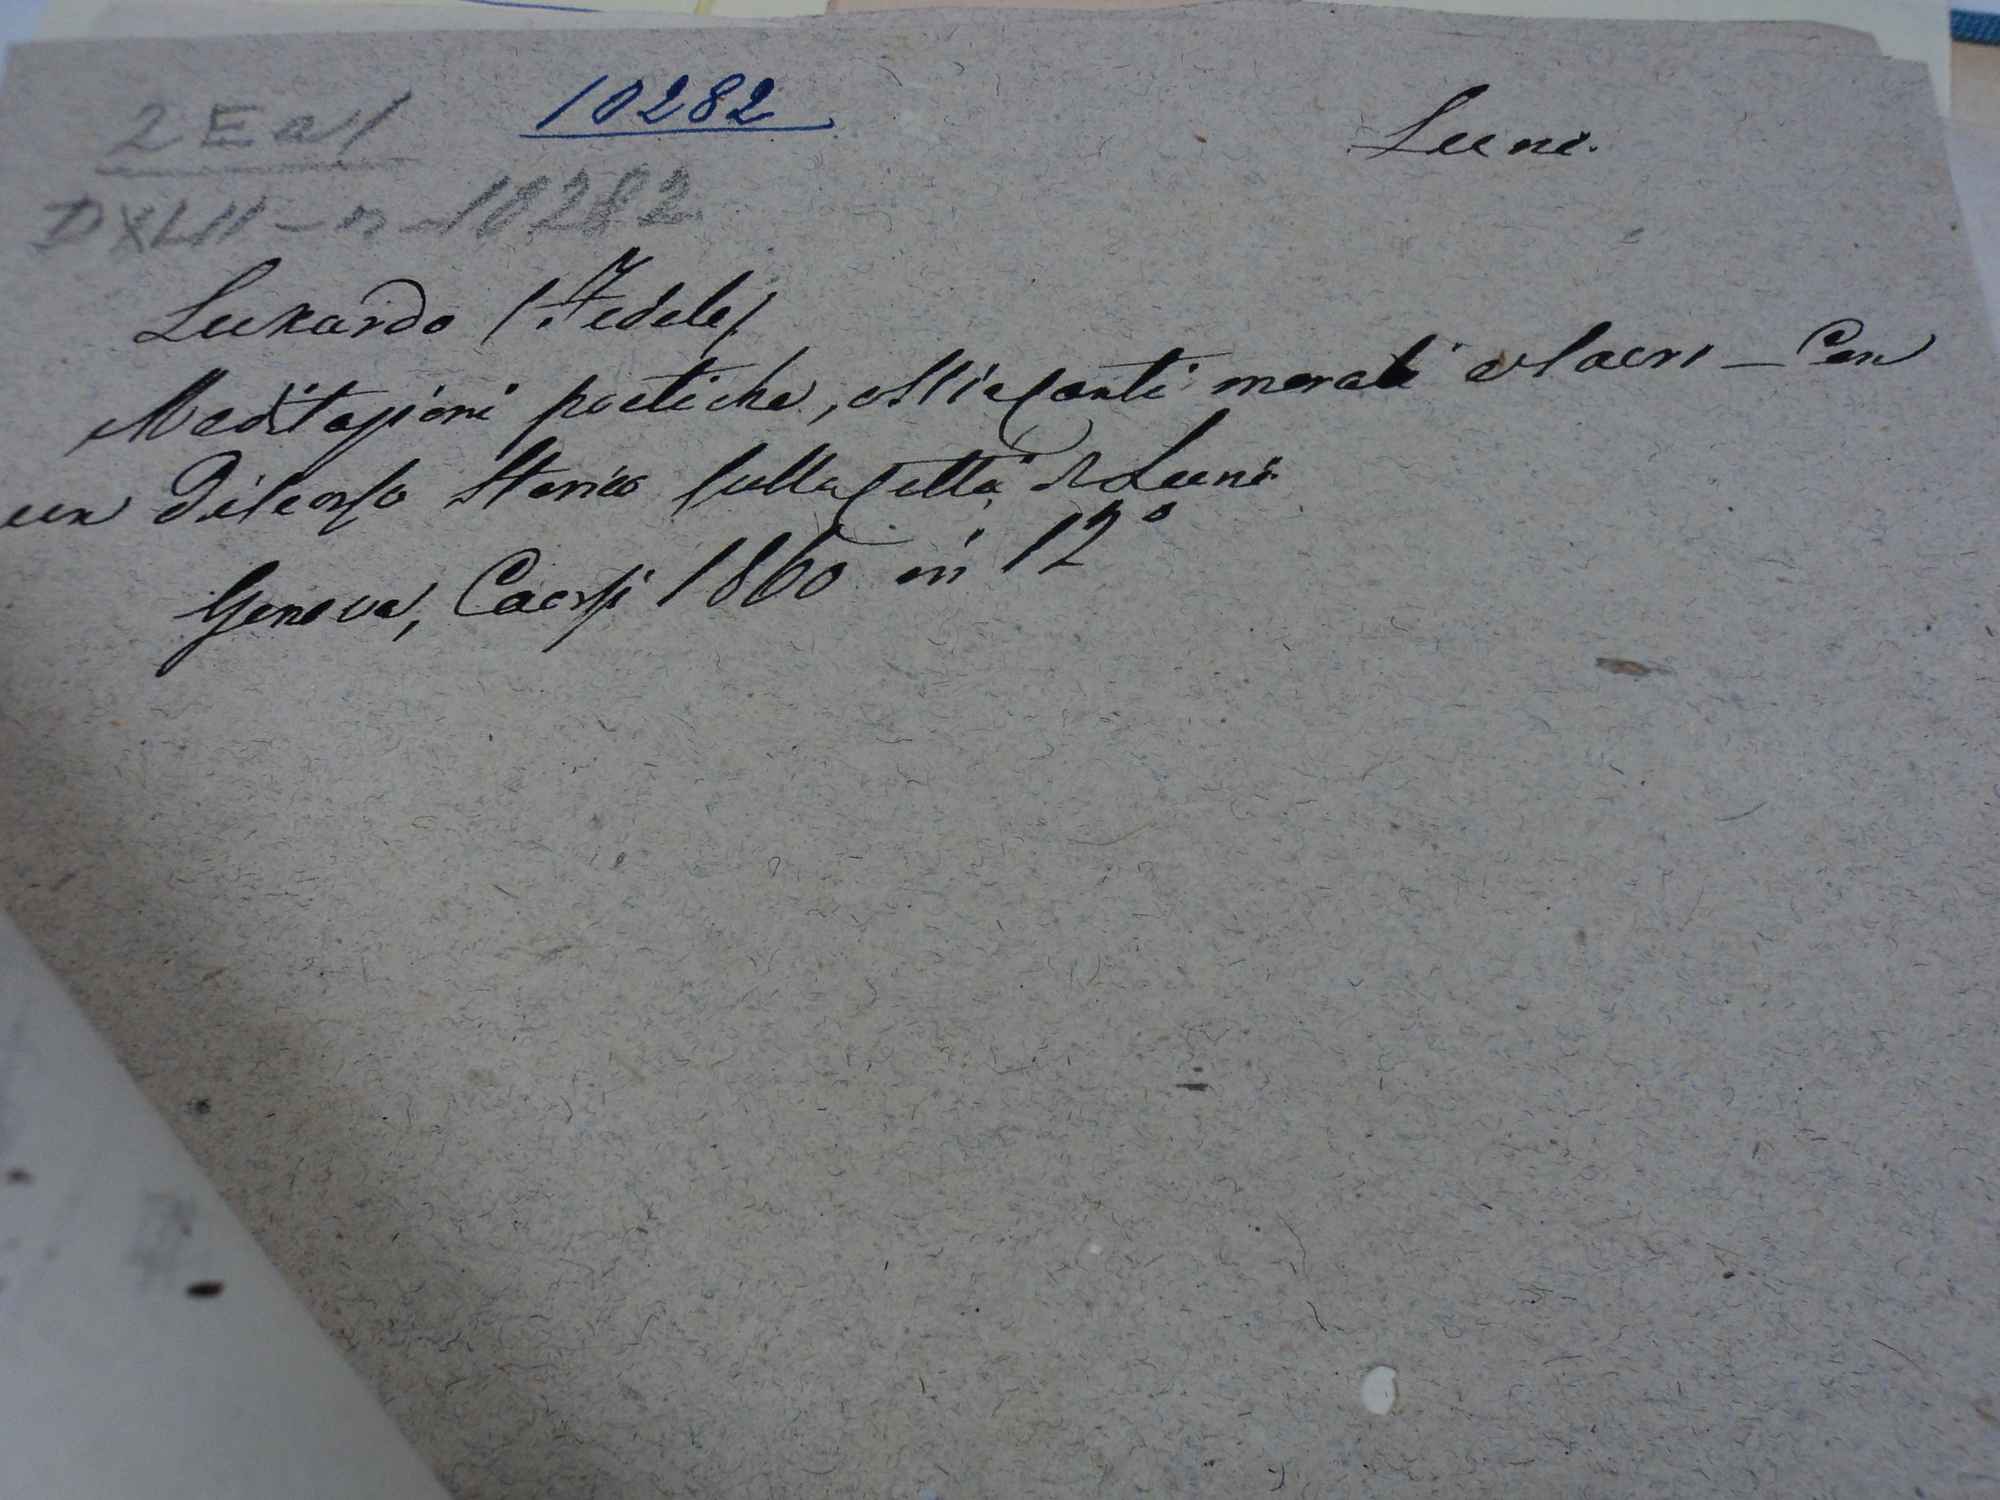 2 E a 1
10282
Luni.
DXLII - n - 10282
Luxardo (Fedele)
Meditazioni poetiche, ossia Canti morali e sacri - Con
un Discorso Storico sulla Città di Luni
Genova, Caorsi 1860 in 12°